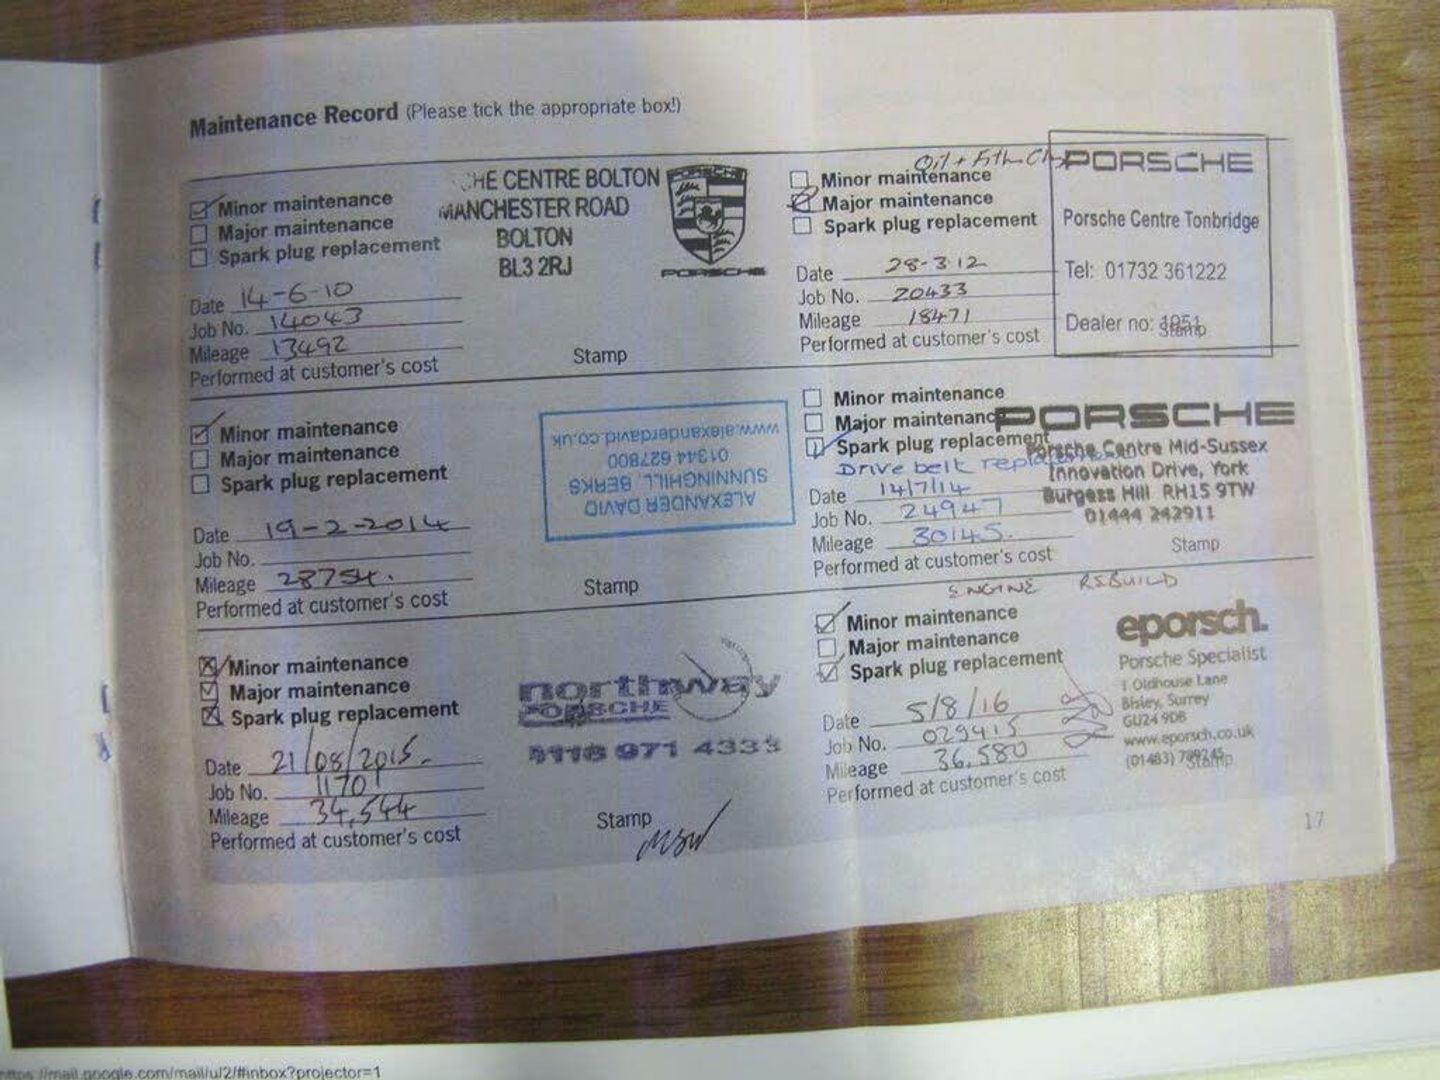 Maintenance Record (Please tick the appropriate box!)
Minor maintenance
Major maintenance
Spark plug replacement
HE CENTRE BOLTON
MANCHESTER ROAD
BOLTON
BL3 2RJ
PORSCHE
PORSCHE
Date 14-6-10
Job No. 14043
Mileage 13492
Performed at customer's cost
Stamp
Oil +
Minor maintenance
Major maintenance
Spark plug replacement
Date 28-3-12
Job No. 20433
Mileage 18471
Performed at customer's cost
PORSCHE
Porsche Centre Tonbridge
Tel: 01732 361222
Dealer no: 1951
Stamp
Minor maintenance
Major maintenance
Spark plug replacement
Date 19-2-2014
Job No.
Mileage 28754.
Performed at customer's cost
ALEXANDER DAVID
SUNNINGHILL, BERKS
01344 627800
www.alexanderdavid.co.uk
Stamp
Minor maintenance
Major maintenance
Spark plug replacement
Drive belt
Date 14/7/14
Job No. 24947
Mileage 30145.
Performed at customer's cost
PORSCHE
Porsche Centre Mid-Sussex
Innovation Drive, York
Burgess Hill RH15 9TW
01444 242911
Stamp
Minor maintenance
Major maintenance
Spark plug replacement
Date 21/08/2015.
Job No. 11701
Mileage 34,544
Performed at customer's cost
northway
PORSCHE
0118 971 4333
Stamp
ENGINE REBUILD
Minor maintenance
Major maintenance
Spark plug replacement
Date 5/8/16
Job No. 029415
Mileage 36,580
Performed at customer's cost
eporsch.
Porsche Specialist
1 Oldhouse Lane
Bisley, Surrey
GU24 9DB
www.eporsch.co.uk
(01483)
Stamp
17
https://mail.google.com/mail/u/2/#inbox?projector=1